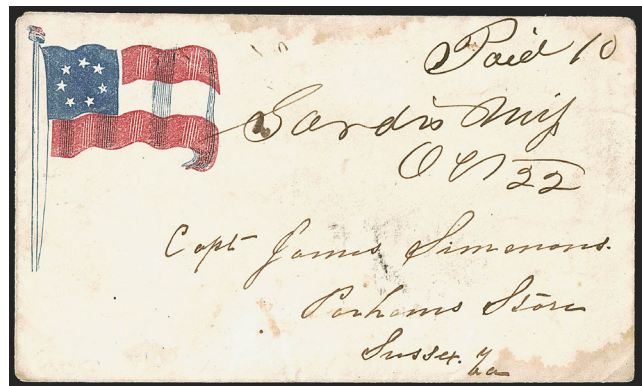 Paid 10
Sardis Miſs
Oct 22
Capt James Simmons.
Parhams Store
Sussex. Va